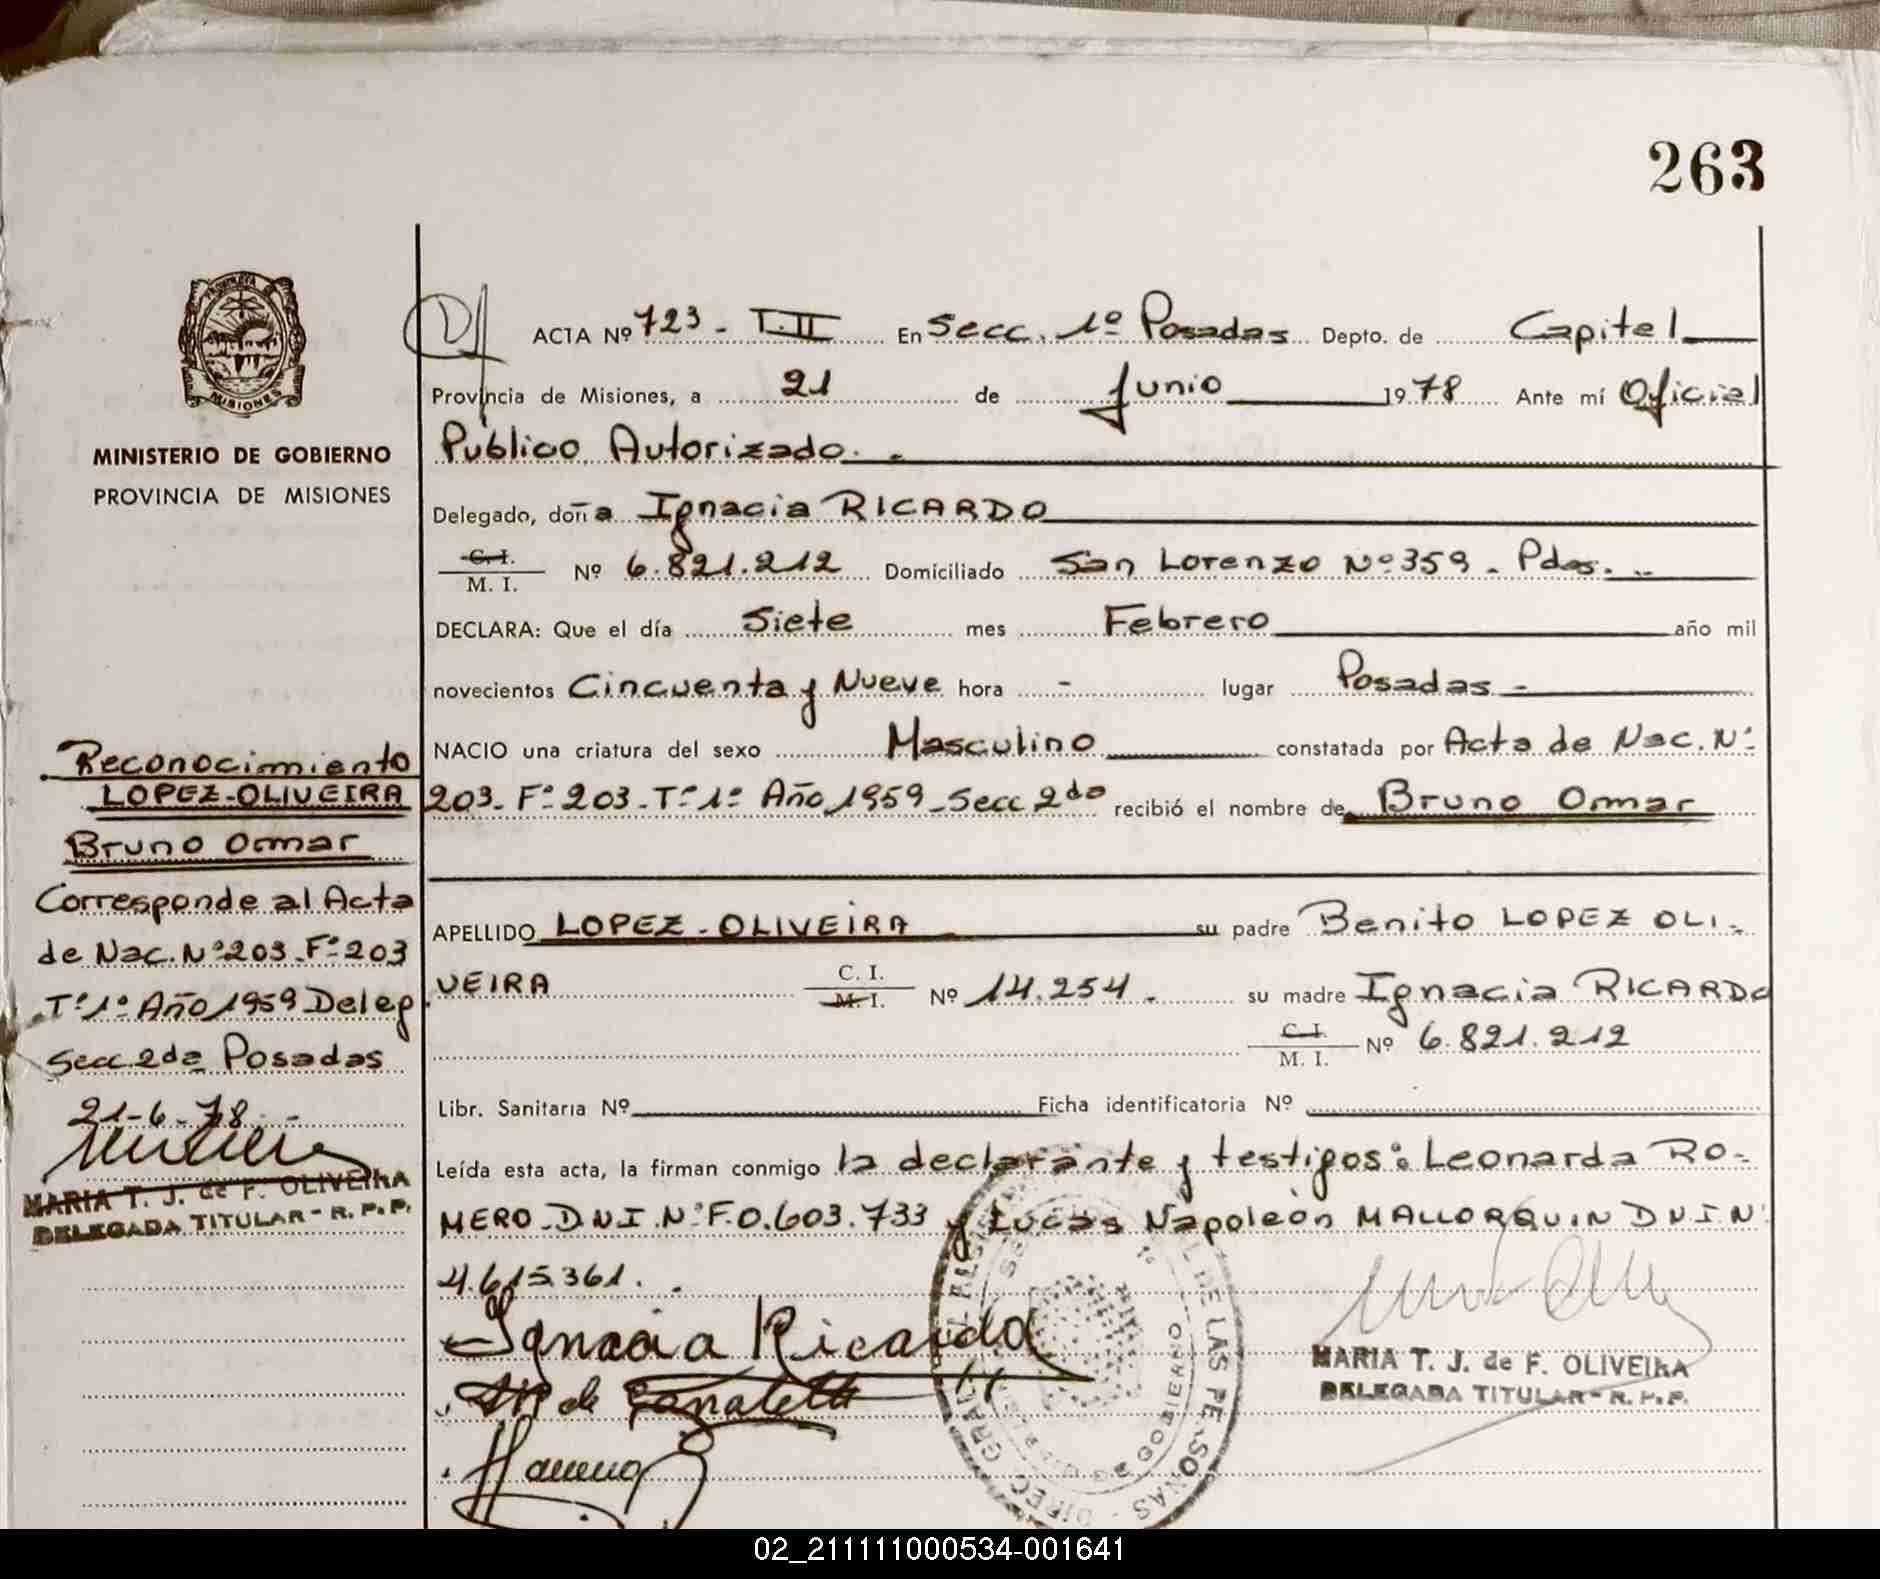 263
PROVINCIA DE
MISIONES
MINISTERIO DE GOBIERNO
PROVINCIA DE MISIONES
Reconocimiento
LOPEZ-OLIVEIRA
Bruno Omar
Corresponde al Acta
de Nac. Nº203. Fº203
Tº1º Año 1959 Deleg
Secc 2da Posadas
21-6-78.-
MARIA T. J. de F. OLIVEIRA
DELEGADA TITULAR - R. P. P.
ACTA Nº 723 - T. II En Secc. 1º Posadas Depto. de Capital
Provincia de Misiones, a 21 de Junio 1978 Ante mí Oficial
Público Autorizado.-
Delegado, doña Ignacia RICARDO
C. I.
M. I. Nº 6.821.212 Domiciliado San Lorenzo Nº359 - Pdas. -
DECLARA: Que el día Siete mes Febrero año mil
novecientos Cincuenta y Nueve hora - lugar Posadas -
NACIO una criatura del sexo Masculino constatada por Acta de Nac. Nº
203 - Fº 203 - Tº 1º Año 1959 - Secc 2da recibió el nombre de Bruno Omar
APELLIDO LOPEZ - OLIVEIRA su padre Benito LOPEZ OLI-
VEIRA C. I.
M. I. Nº 14.254. su madre Ignacia RICARDO
C. I.
M. I. Nº 6.821.212
Libr. Sanitaria Nº Ficha identificatoria Nº
Leída esta acta, la firman conmigo la declarante y testigos: Leonarda RO-
MERO - D.N.I. Nº F.0.603.733 y Lucas Napoleón MALLORQUIN DNI Nº
4.615.361.
Ignacia Ricardo
MARIA T. J. de F. OLIVEIRA
DELEGADA TITULAR - R. P. P.
DE LAS PERSONAS
GOBIERNO
02_211111000534-001641